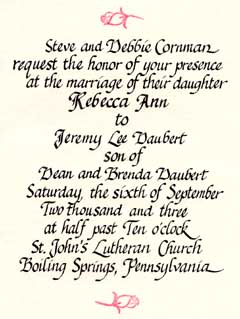 Steve and Debbie Cornman
request the honor of your presence
at the marriage of their daughter
Rebecca Ann
to
Jeremy Lee Daubert
son of
Dean and Brenda Daubert
Saturday, the sixth of September
Two thousand and three
at half past Ten o'clock
St. John's Lutheran Church
Boiling Springs, Pennsylvania